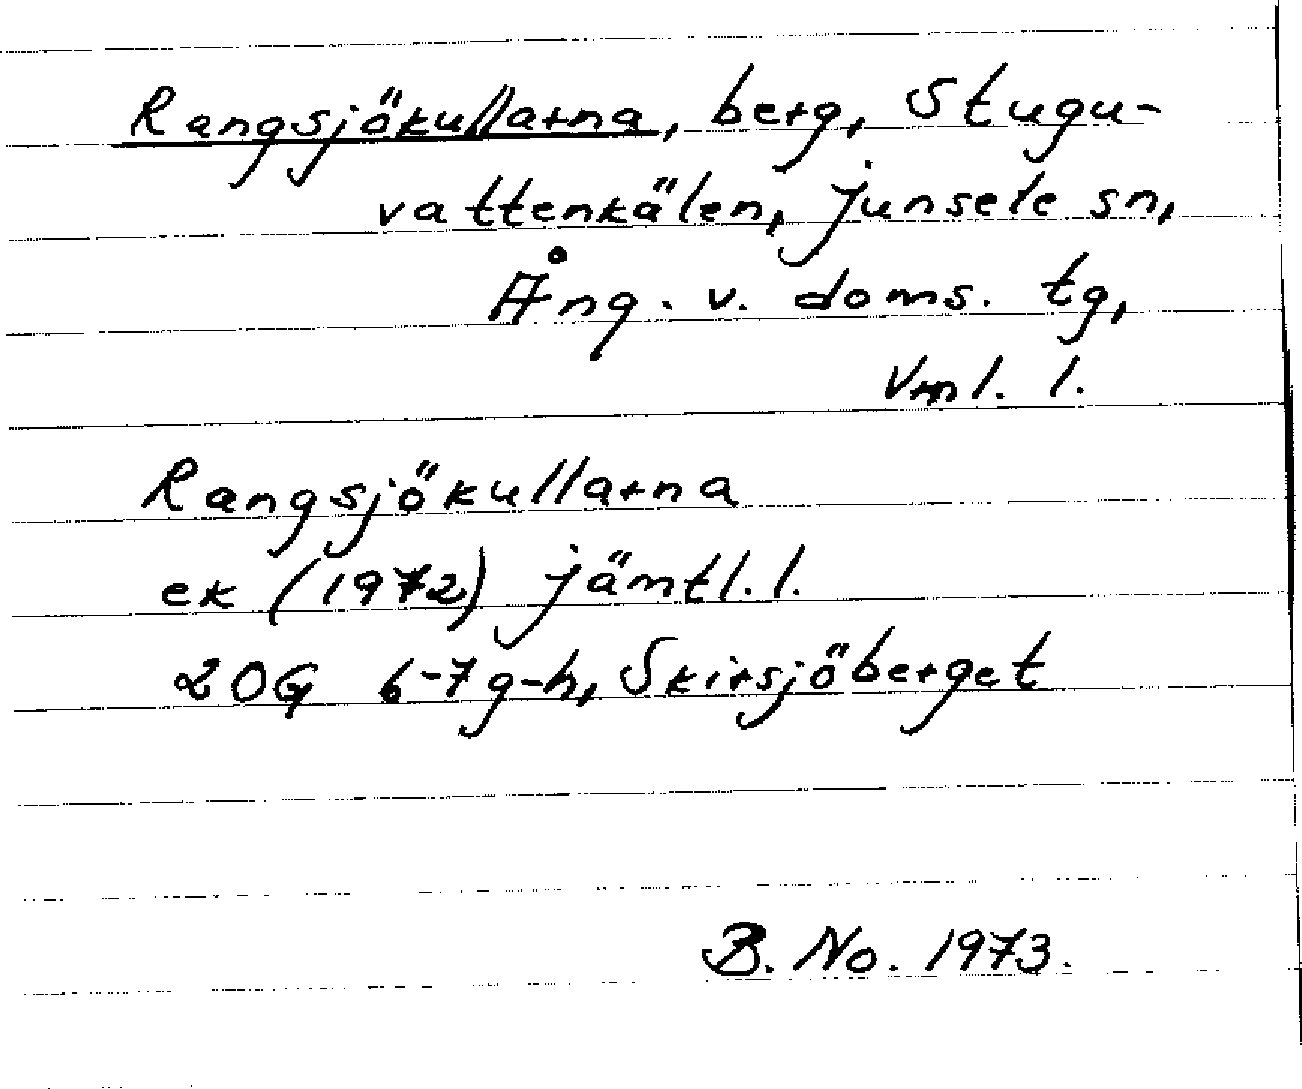 Rangsjökullarna, berg, Stugu-
vattenkälen, Junsele sn,
Ång. v. doms. tg,
Vrml. l.
Rangsjökullarna
ek (1972) jämtl. l.
20G 6-7g-h, Skirsjöberget
B. No. 1973.